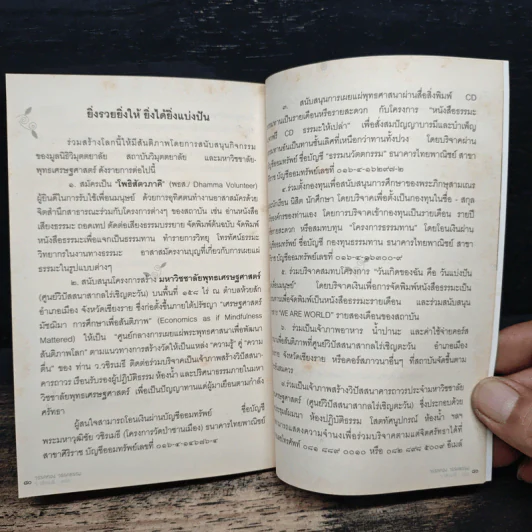 ยิ่งรวยยิ่งให้ ยิ่งได้ยิ่งแบ่งปัน
ร่วมสร้างโลกนี้ให้มีสันติภาพโดยการสนับสนุนกิจกรรม
ของมูลนิธิวิมุตตยาลัย สถาบันวิมุตตยาลัย และมหาวิชชาลัย-
พุทธเศรษฐศาสตร์ ดังรายการต่อไปนี้
๑. สมัครเป็น "โพธิสัตวภาคี" (พอส./ Dhamma Volunteer)
ผู้ยินดีในการรับใช้เพื่อนมนุษย์ ด้วยการอุทิศตนทำงานอาสาสมัครด้วย
จิตสำนึกสาธารณะร่วมกับโครงการต่างๆ ของสถาบัน เช่น อ่านหนังสือ
เสียงธรรมะ ถอดเทป ตัดต่อเสียงธรรมบรรยาย จัดพิมพ์ต้นฉบับ จัดพิมพ์
หนังสือธรรมะเพื่อแจกเป็นธรรมทาน ทำรายการวิทยุ โทรทัศน์ธรรมะ
วิทยากรในงานทางธรรมะ อาสาสมัครงานบุญที่เกี่ยวกับการเผยแผ่
ธรรมะในรูปแบบต่างๆ
๒. สนับสนุนโครงการสร้าง มหาวิชชาลัยพุทธเศรษฐศาสตร์
(ศูนย์วิปัสสนาสากลไร่เชิญตะวัน) บนพื้นที่ ๑๕๘ ไร่ ณ ตำบลห้วยสัก
อำเภอเมือง จังหวัดเชียงราย ซึ่งก่อตั้งขึ้นภายใต้ปรัชญา "เศรษฐศาสตร์
มัชฌิมา การศึกษาเพื่อสันติภาพ" (Economics as if Mindfulness
Mattered) ให้เป็น "ศูนย์กลางการเผยแผ่พระพุทธศาสนาเพื่อพัฒนา
สันติภาพโลก" ตามแนวทางการสร้างวัดให้เป็นแหล่ง "ความรู้" คู่ "ความ
ตื่น" ของ ท่าน ว.วชิรเมธี ติดต่อร่วมบริจาคเป็นเจ้าภาพสร้างวิปัสสนา-
คารถาวร เรือนรับรองผู้ปฏิบัติธรรม ห้องน้ำ และบริคณธรรมภายในมหา
วิชชาลัยพุทธเศรษฐศาสตร์ เพื่อเป็นปัญญาทานแด่ผู้มาเยือนตามกำลัง
ศรัทธา
ผู้สนใจสามารถโอนเงินผ่านบัญชีออมทรัพย์ ชื่อบัญชี
พระมหาวุฒิชัย วชิรเมธี (โครงการวัดป่าชานเมือง) ธนาคารไทยพาณิชย์
สาขาศิริราช บัญชีออมทรัพย์เลขที่
๘๐
๓. สนับสนุนการเผยแผ่พุทธศาสนาผ่านสื่อสิ่งพิมพ์ CD
เป็นรายเดือนหรือรายสะดวก กับโครงการ "หนังสือธรรมะ
CD ธรรมะให้เปล่า" เพื่อสั่งสมปัญญาบารมีและบำเพ็ญ
อันเป็นทานชั้นเลิศที่เหนือกว่าทานทั้งปวง โดยบริจาคผ่าน
บัญชีออมทรัพย์ ชื่อบัญชี "ธรรมนวัตกรรม" ธนาคารไทยพาณิชย์ สาขา
บัญชีออมทรัพย์เลขที่
๔. ร่วมตั้งกองทุนเพื่อสนับสนุนการศึกษาของพระภิกษุสามเณร
นักเรียน นิสิต นักศึกษา โดยบริจาคเพื่อตั้งเป็นกองทุนในชื่อ - สกุล
ของท่านเอง โดยการบริจาคเข้ากองทุนเป็นรายเดือน รายปี
หรือสมทบทุน "โครงการธรรมทาน" โดยโอนเงินผ่าน
บัญชีออมทรัพย์ ชื่อบัญชี กองทุนธรรมทาน ธนาคารไทยพาณิชย์ สาขา
บัญชีออมทรัพย์เลขที่
๕. ร่วมบริจาคสมทบโครงการ "วันเกิดของฉัน คือ วันแบ่งปัน
" โดยบริจาคเงินเพื่อการจัดพิมพ์หนังสือธรรมะเป็น
เพื่อจัดพิมพ์เป็นหนังสือธรรมะรายเดือน และร่วมสนับสนุน
"WE ARE WORLD" รายสองเดือนของสถาบัน
๖. ร่วมเป็นเจ้าภาพอาหาร น้ำปานะ และค่าใช้จ่ายคอร์ส
ที่ศูนย์วิปัสสนาสากลไร่เชิญตะวัน อำเภอเมือง
จังหวัดเชียงราย หรือคอร์สภาวนาอื่นๆ ที่สถาบันจัดขึ้นตาม
๗. ร่วมเป็นเจ้าภาพสร้างวิปัสสนาคารถาวรประจำมหาวิชชาลัย
(ศูนย์วิปัสสนาสากลไร่เชิญตะวัน) ซึ่งประกอบด้วย
ห้องปฏิบัติธรรม โสตทัศนูปกรณ์ ห้องน้ำ ฯลฯ
แสดงความจำนงเพื่อร่วมบริจาคตามแต่จิตศรัทธาได้ที่
โทรศัพท์ ๐๘๑ ๘๘๙ ๐๐๑๐ หรือ ๐๘๒ ๘๙๘ ๕๐๐๙ อีเมล์
๘๑